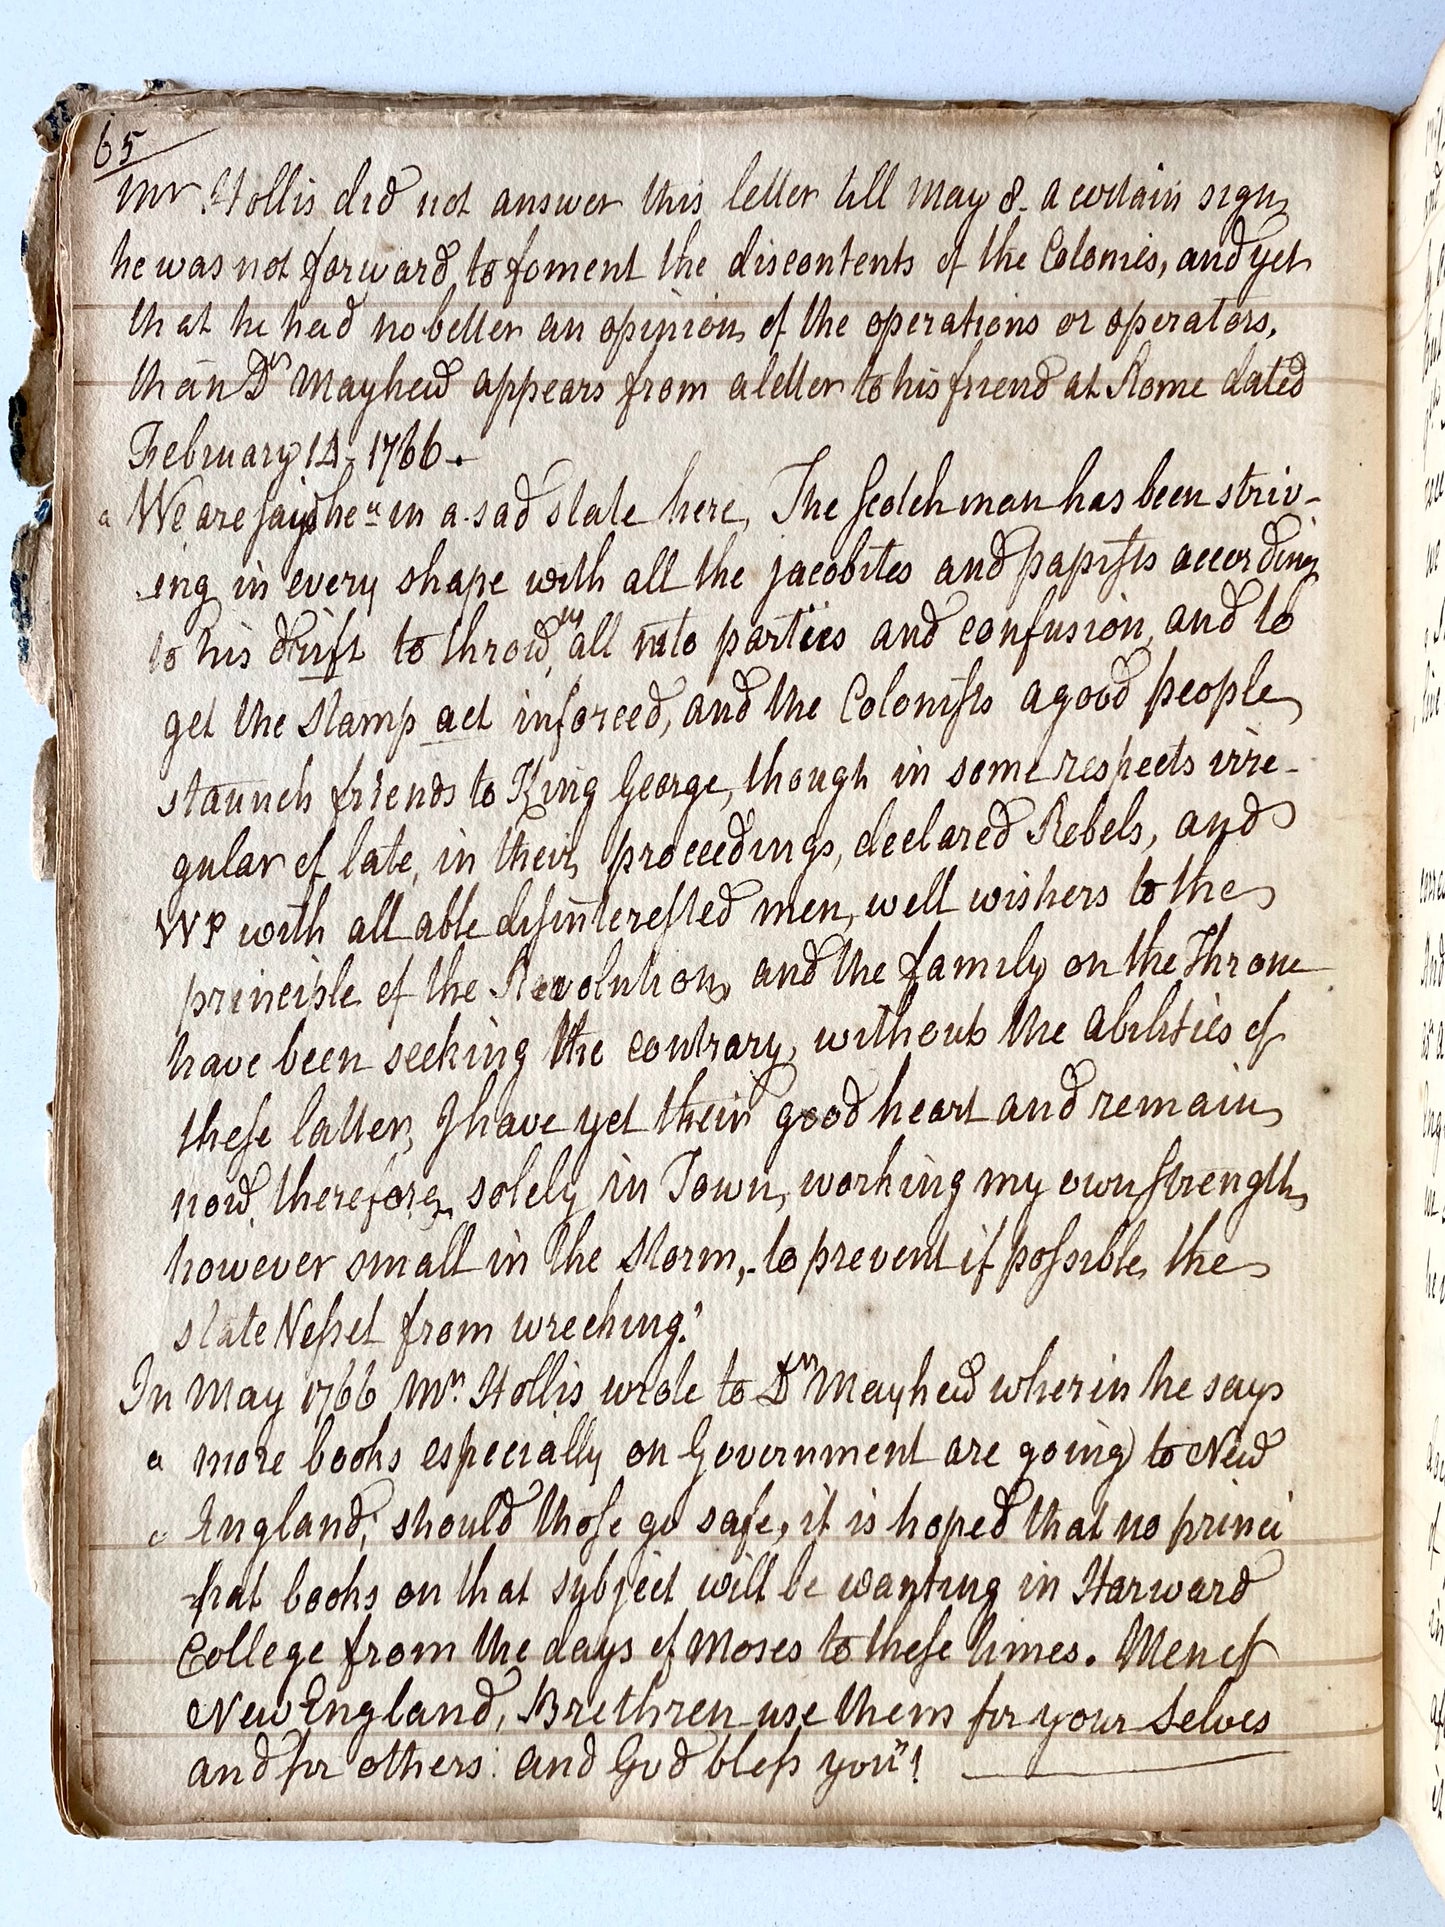 65
Mr Hollis did not answer this letter till May 8. a certain sign
he was not forward to foment the discontents of the Colonies, and yet
that he had no better an opinion of the operations or operators,
than Dr Mayhew appears from a letter to his friend at Rome dated
February 14, 1766.
"We are says he" in a sad state here, The Scotchman has been striv-
ing in every shape with all the jacobites and papists according
to his drift to throw us all into parties and confusion, and to
get the stamp act inforced, and the Colonists a good people
staunch friends to King George, though in some respects irre-
gular of late, in their proceedings, declared Rebels, and
WP with all able disinterested men, well wishers to the
principle of the Revolution and the family on the Throne
have been seeking the contrary, without the abilities of
these latter, I have yet their good heart and remain
now, therefore, solely in Town, working my own strength,
however small in the storm, to prevent if possible, the
state Vessel from wrecking."
In May 1766 Mr. Hollis wrote to Dr Mayhew wherin he says
" more books especially on Government are going to New
" England, should those go safe, it is hoped that no princi
pal books on that subject will be wanting in Harward
College from the days of Moses to these times. Men of
New England, Brethren use them for your selves
and for others: and God bless you"!